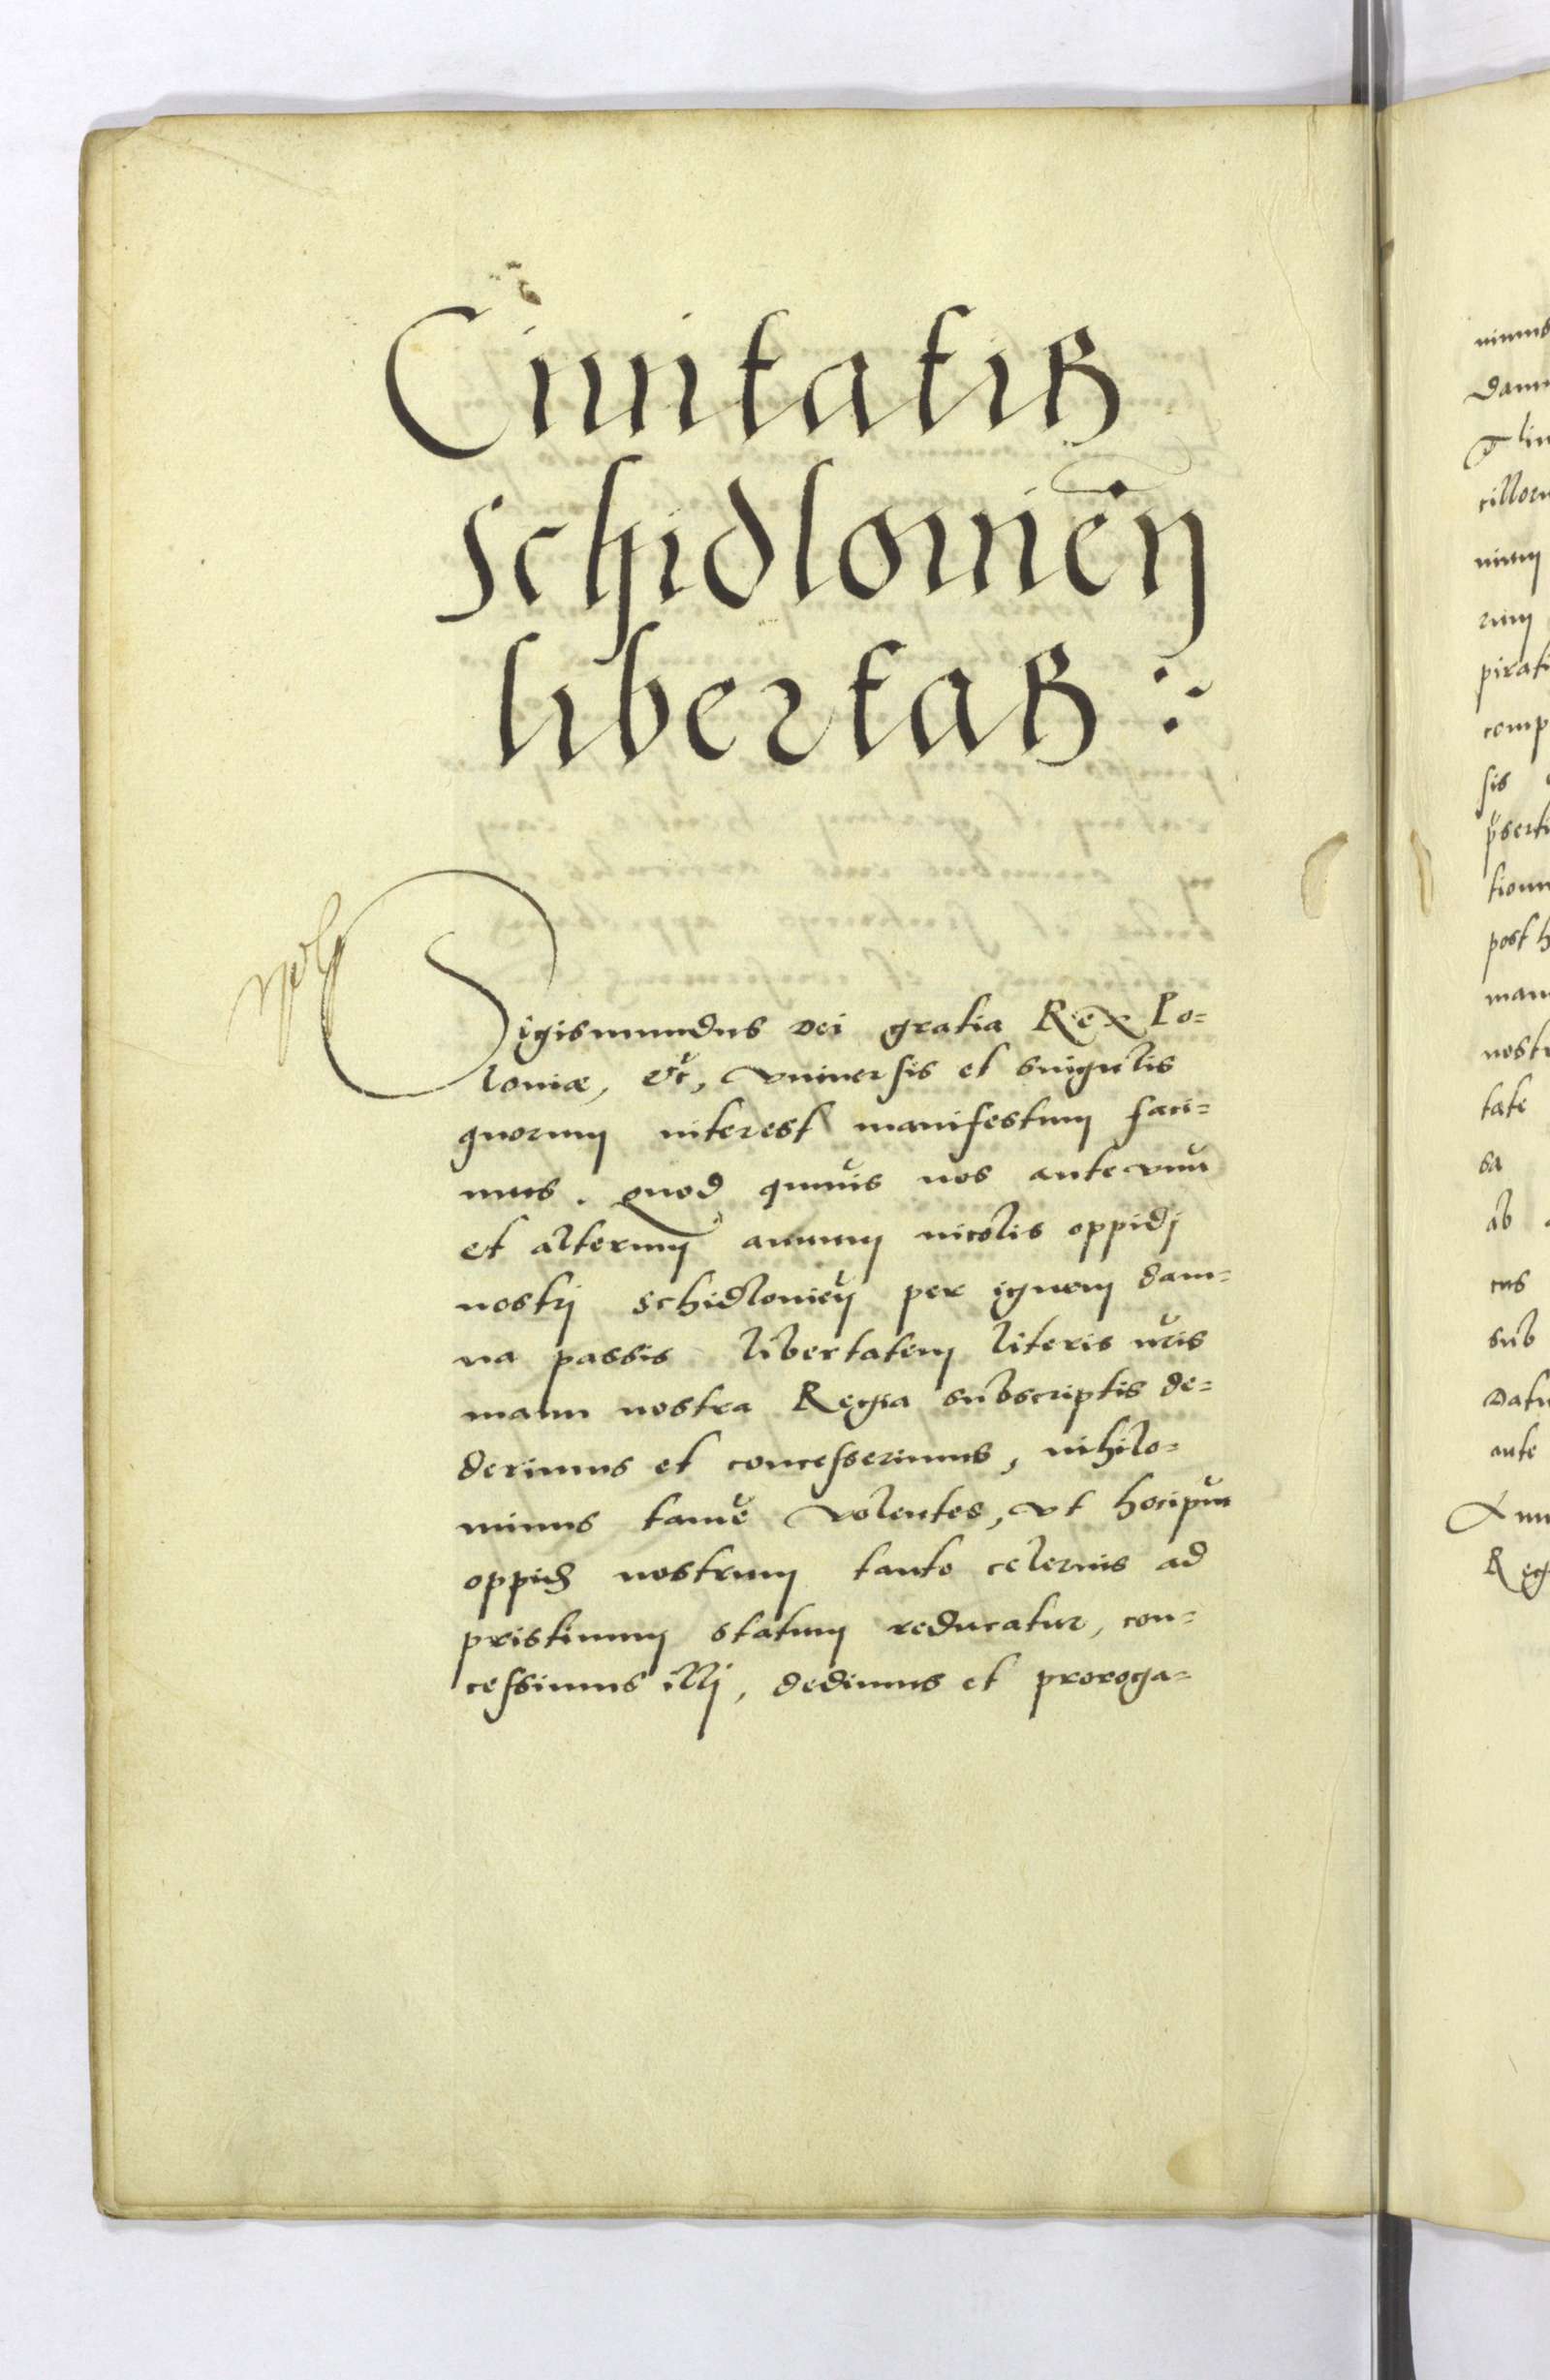 Ciuitatis
Schidlouień
libertas
Sigismundus Dei gratia Rex Po=
loniæ, etc, vniuersis et singulis
quorum interest manifestum faci=
mus. Quod quuis nos ante vnu
et alterum annum incolis oppidj
nostrj Schidlouień per ignem dam=
na passis libertatem literis nris
manu nostra Regia subscriptis de=
derimus et concesserimus, nihilo=
minus tame volentes, vt hocipm
oppid nostrum tanto celerius ad
pristinum statum reducatur, con=
cessimus illj, dedimus et proroga=
nimus
cilloru
pirati
comp
sis
tionu
post h
nostr
tate
sa
ab
cus
sub
Datu
ante
Reg